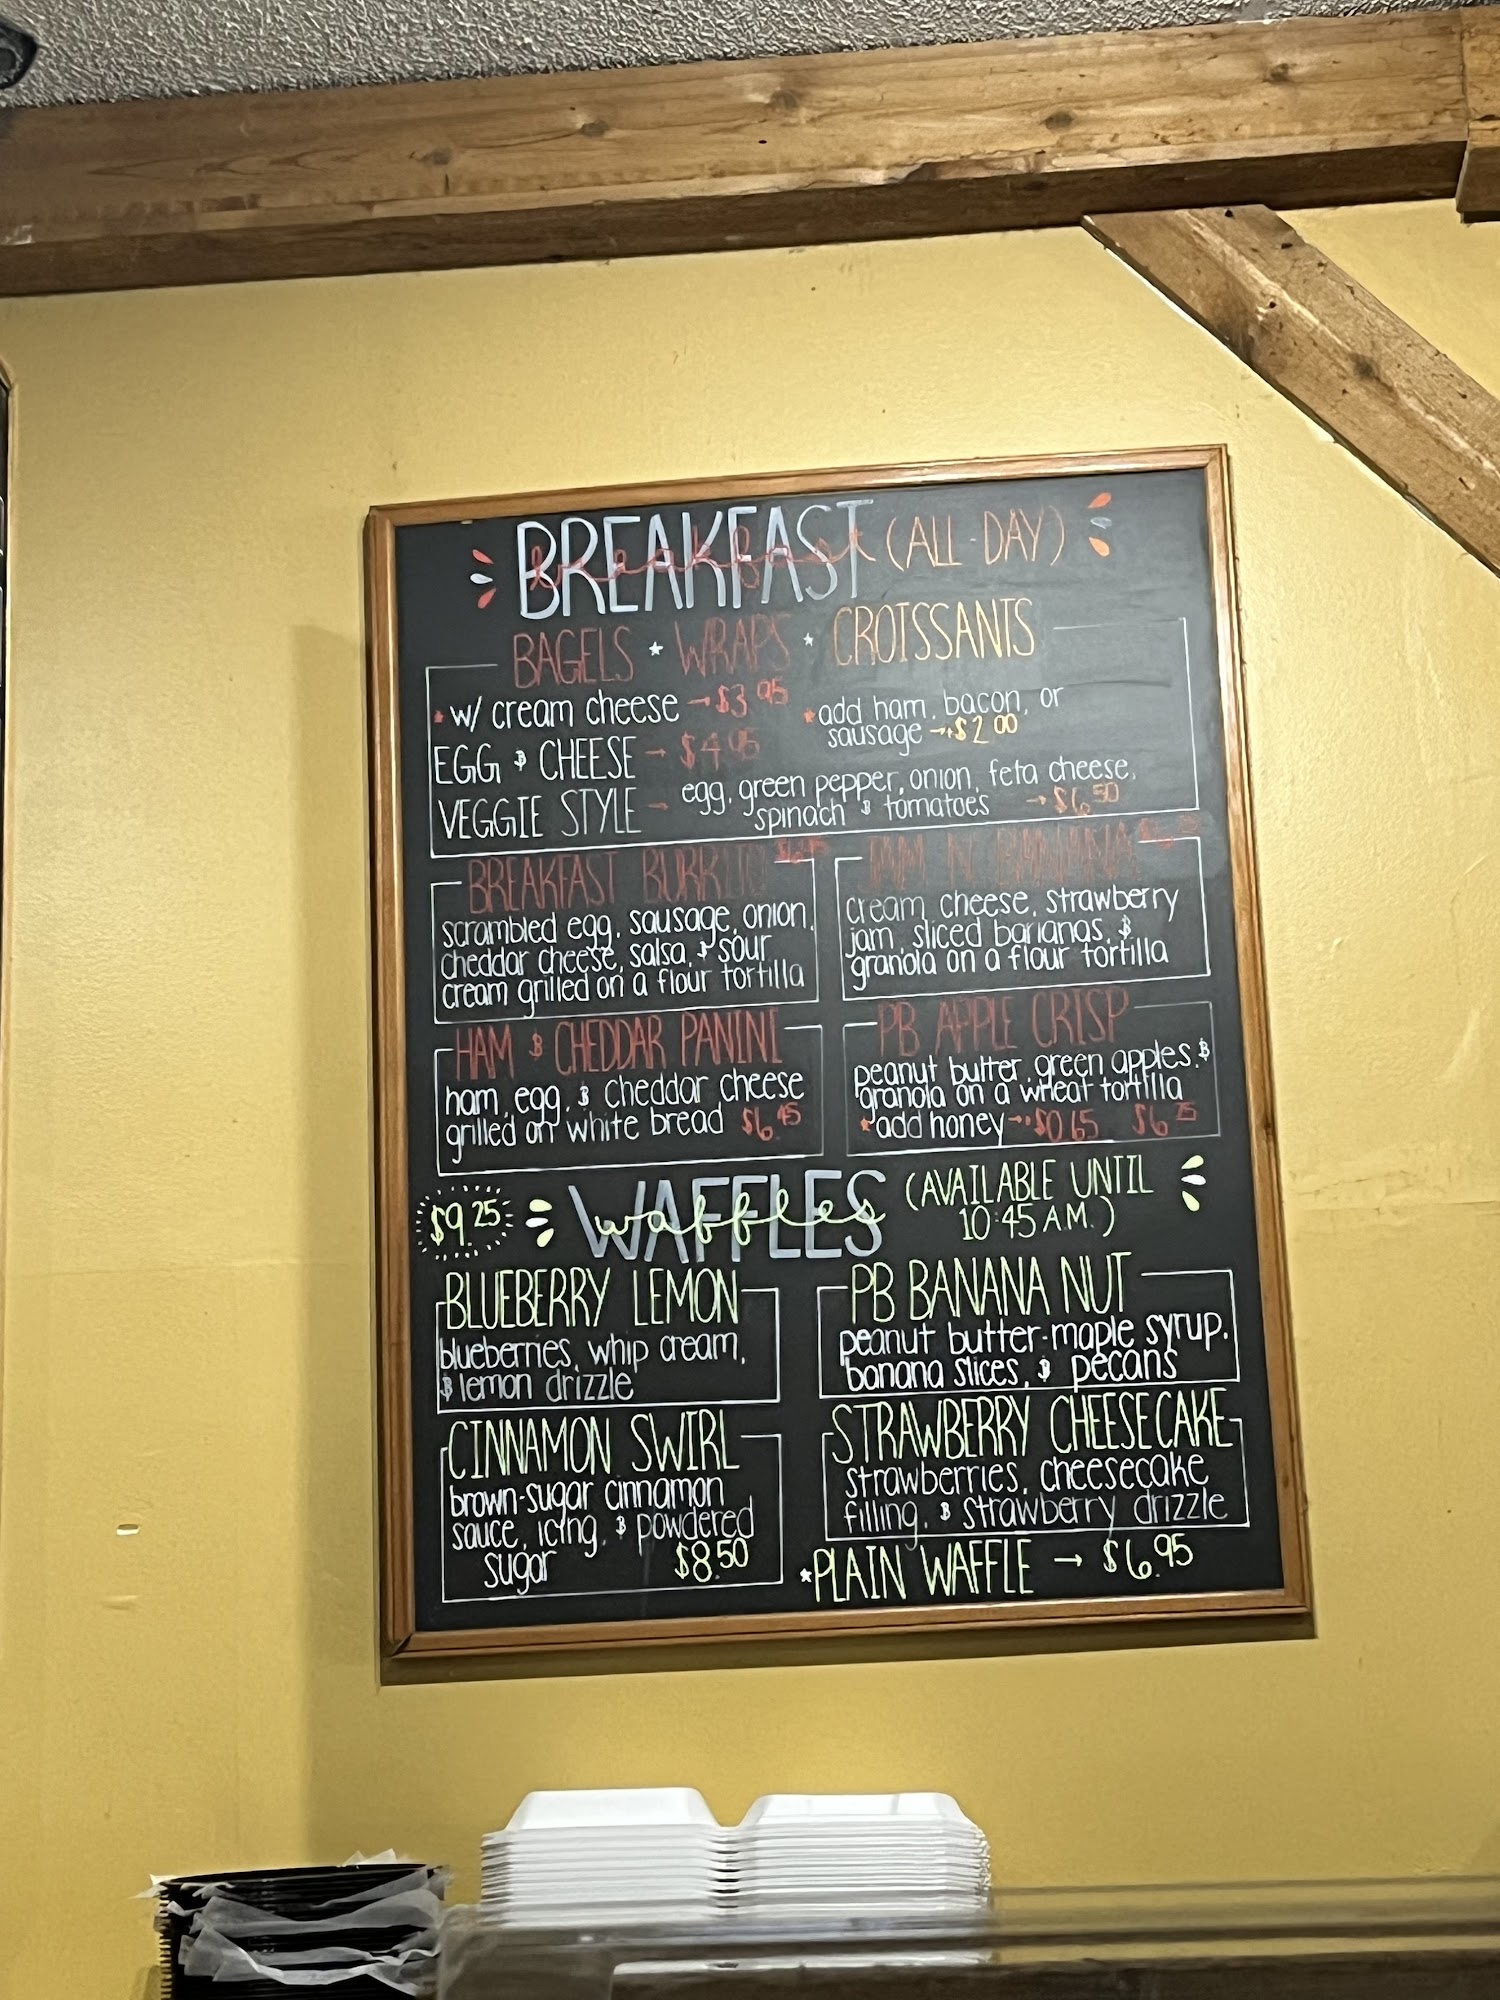 BREAKFAST (ALL-DAY)
breakfast
BAGELS * WRAPS * CROISSANTS
* w/ cream cheese → $3.95
* add ham, bacon, or
sausage → $2.00
EGG & CHEESE → $4.95
VEGGIE STYLE → egg, green pepper, onion, feta cheese,
spinach & tomatoes → $6.50
BREAKFAST BURRITO
scrambled egg, sausage, onion,
cheddar cheese, salsa, & sour
cream grilled on a flour tortilla
JAM N' BANANA
cream cheese, strawberry
jam, sliced bananas, &
granola on a flour tortilla
HAM & CHEDDAR PANINI
ham, egg, & cheddar cheese
grilled on white bread $6.45
PB APPLE CRISP
peanut butter, green apples, &
granola on a wheat tortilla
* add honey → $0.65 $6.25
$9.25 WAFFLES (AVAILABLE UNTIL
waffles
10:45 A.M.)
BLUEBERRY LEMON
blueberries, whip cream,
& lemon drizzle
PB BANANA NUT
peanut butter-maple syrup,
banana slices, & pecans
CINNAMON SWIRL
brown-sugar cinnamon
sauce, icing, & powdered
sugar $8.50
STRAWBERRY CHEESECAKE
strawberries, cheesecake
filling, & strawberry drizzle
* PLAIN WAFFLE → $6.95